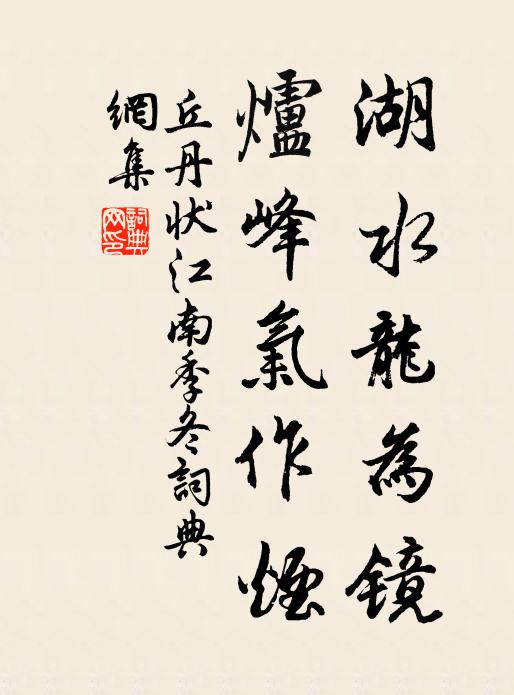 湖水龍為鏡
爐峰氣作煙
丘丹狀江南季冬詞典
網集
詞典
网印